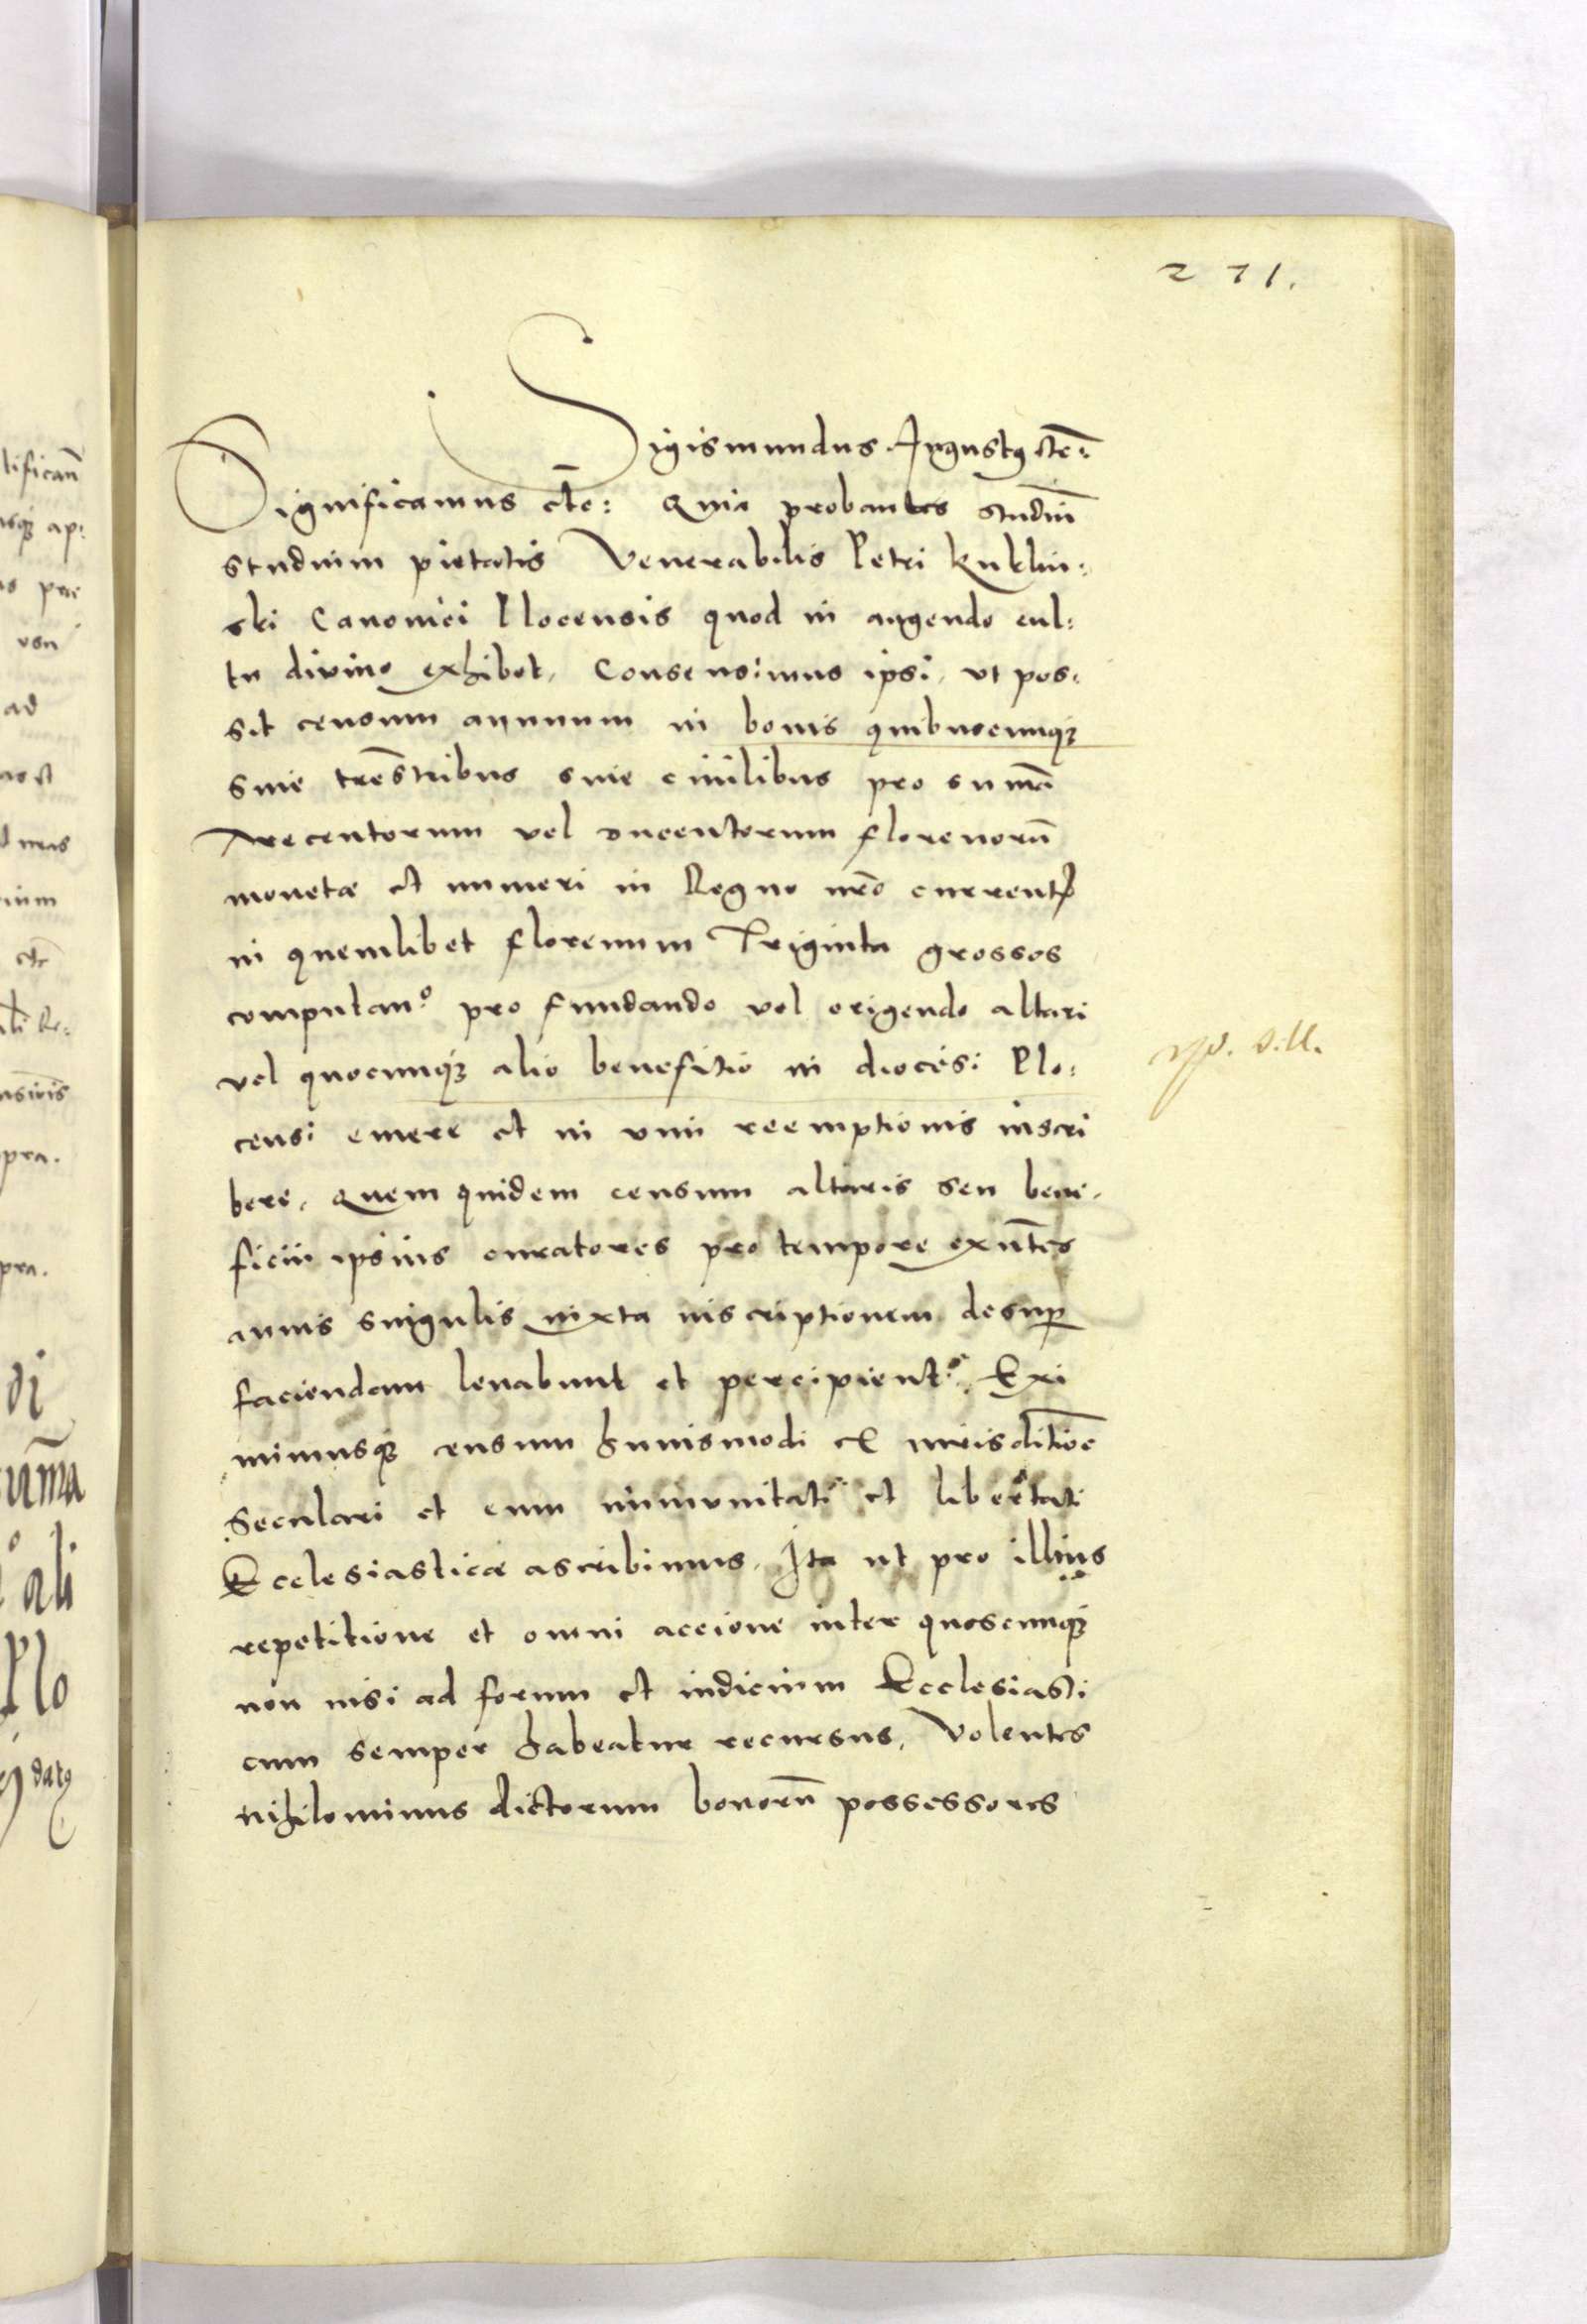 271.
Sigismundus Augustus etc:
Significamus etc: Quia probantes studiu̅
studium pietatis Venerabilis Petri Kuklin:
ski Canonici Plocensis quod in augendo cul:
tu divino exhibet, Consensimus ipsi, ut pos:
sit censum annuum in bonis quibuscunqȝ
sive tre̅stribus sive civilibus pro sum̅a
Trecentorum vel ducentorum florenoru̅
monetæ et numeri in Regno nr̅o current̅
in quemlibet florenum Triginta grossos
computan° pro fundando vel erigendo altari
vel quocunqȝ alio benefitio in diocesi Plo:
censi emere et in vim reemptionis inscri
bere, quem quidem censum altaris seu bene,
ficiii ipsius curatores pro tempore exn̅tes
annis singulis iuxta inscriptionem desup̱
faciendam levabunt et percipient, Exi
mimusqȝ censum huiusmodi ex iurisditio̅e
seculari et eum immunitati et libertati
Ecclesiasticæ ascribimus, Ita ut pro illius
repetitione et omni accione inter quoscunqȝ
non nisi ad forum et iudicium Ecclesiasti
cum semper habeatur recursus, Volentes
nihilominus dictorum bonoru̅ possessores